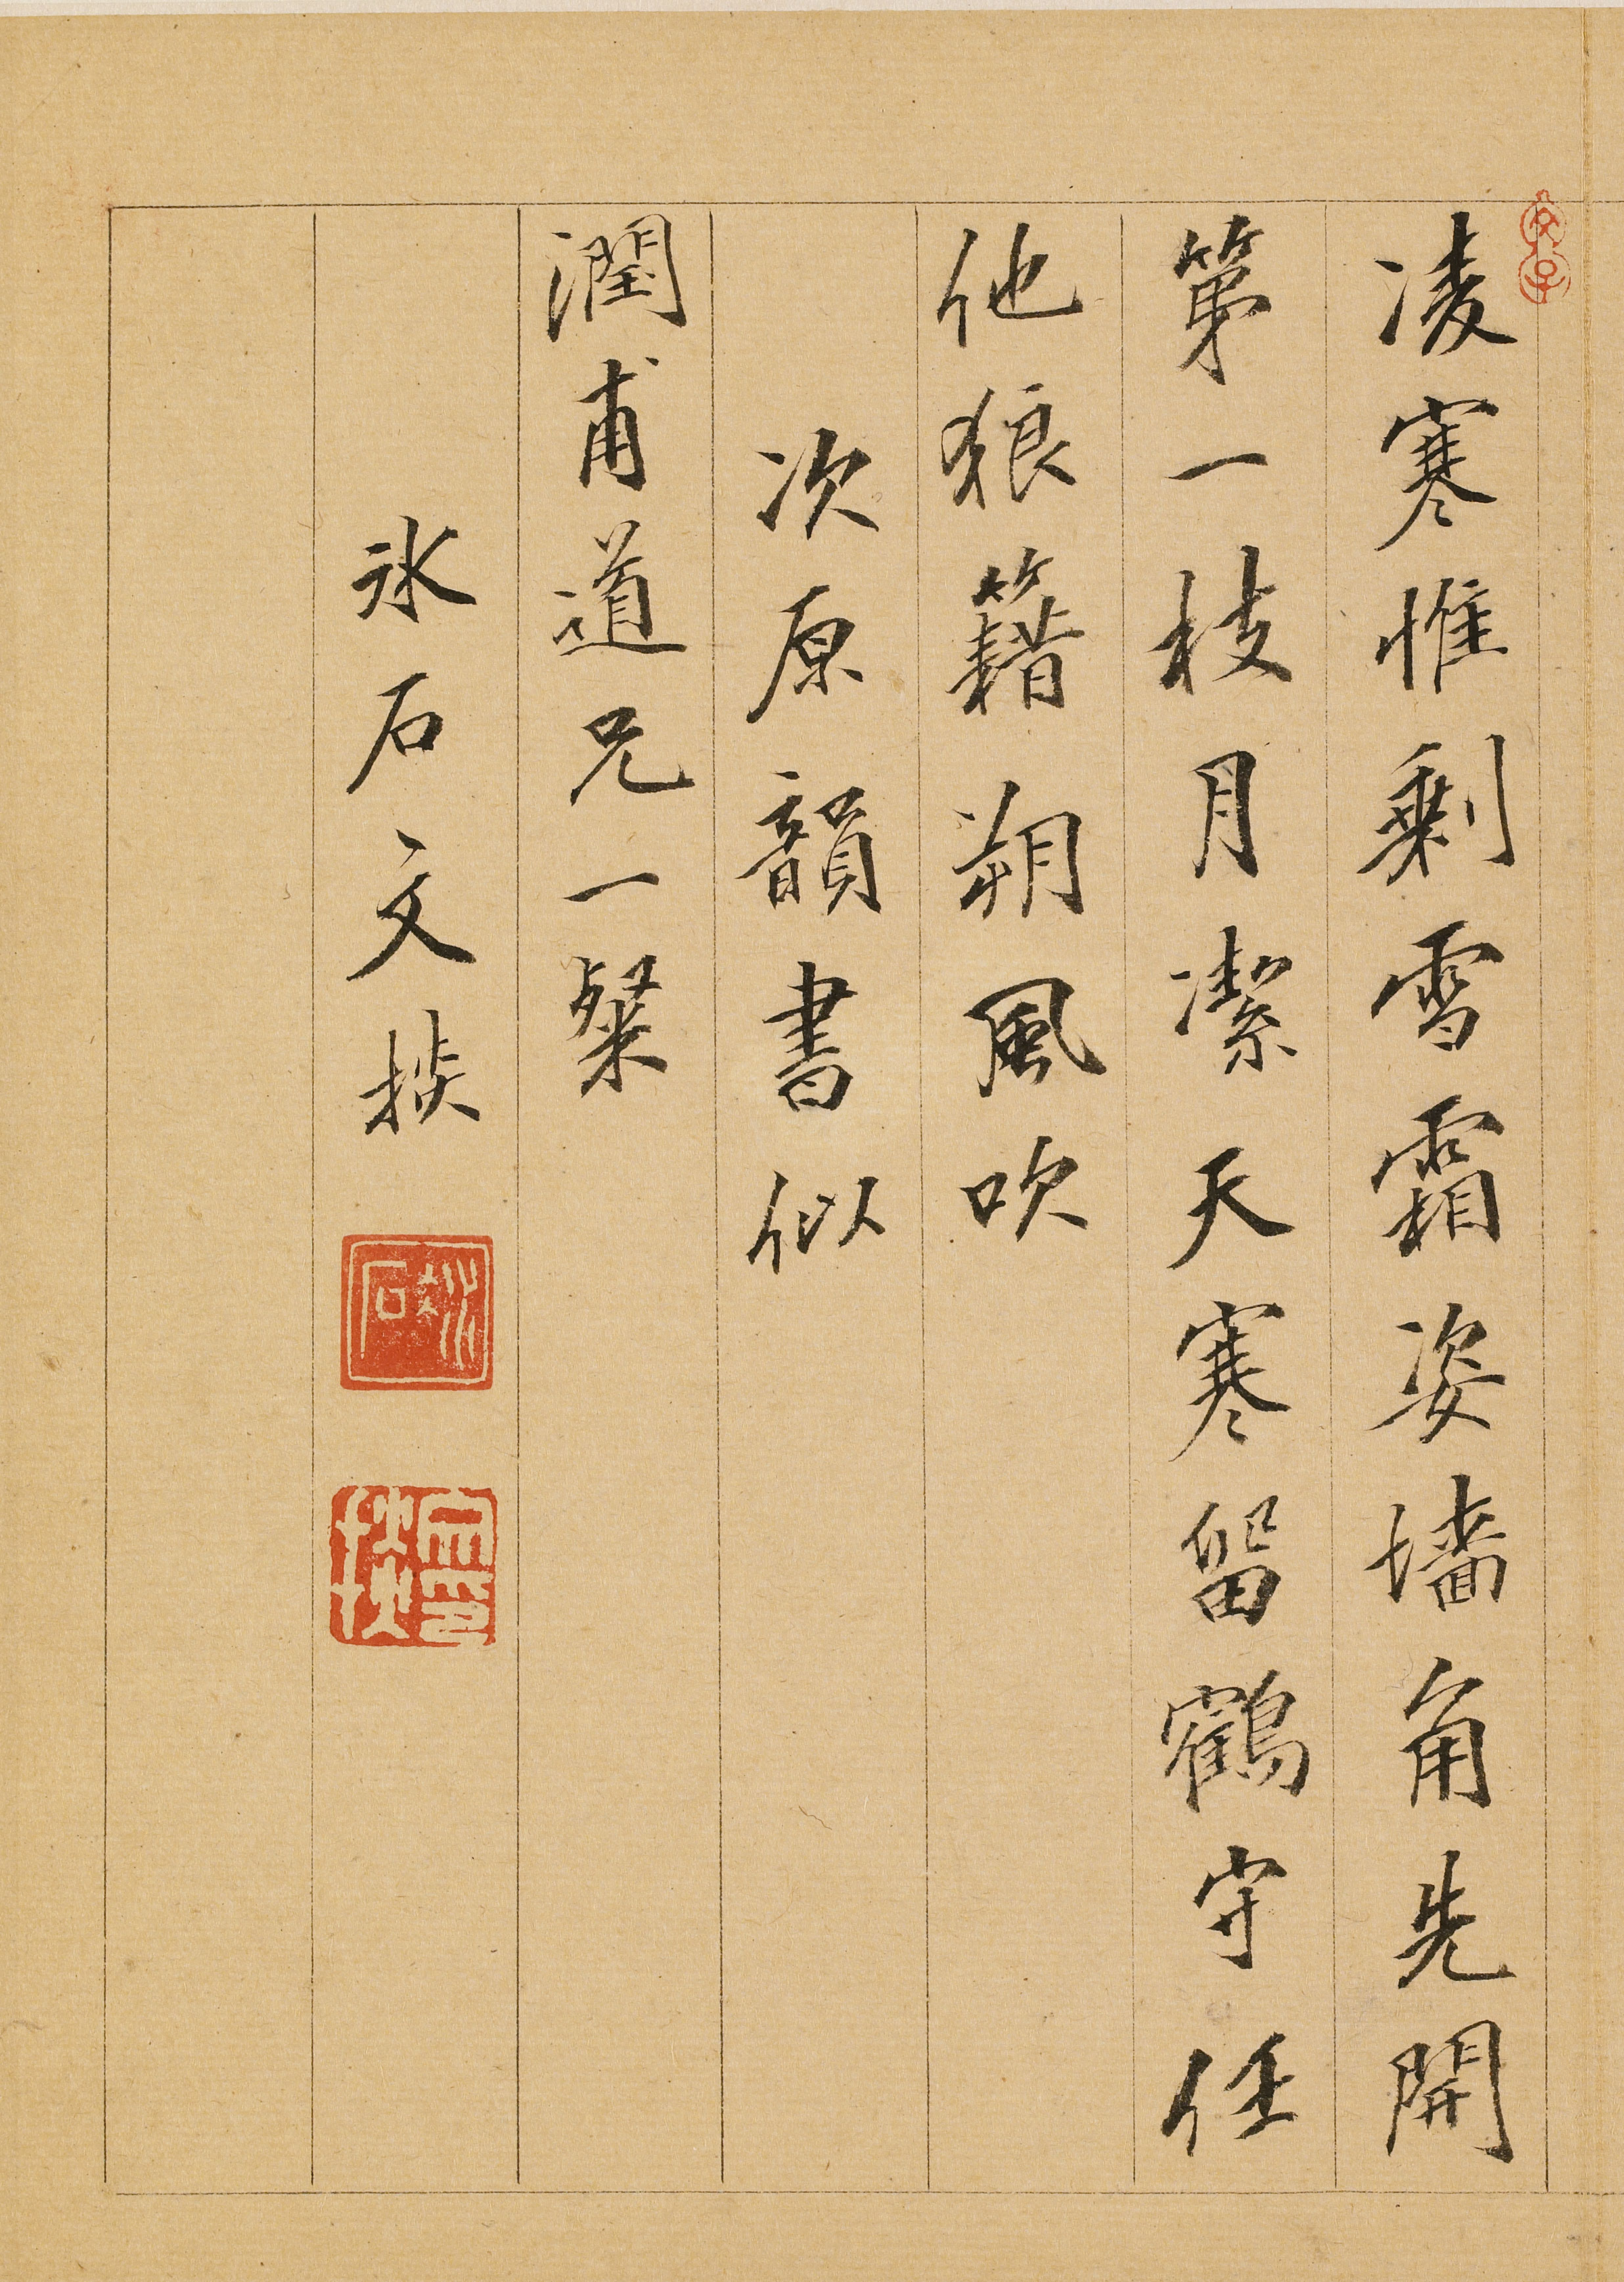 凌寒惟剩雪霜姿墻角先開
第一枝月潔天寒留鶴守任
他狼籍朔風吹
次原韻書似
潤甫道兄一粲
冰石文掞
冰石